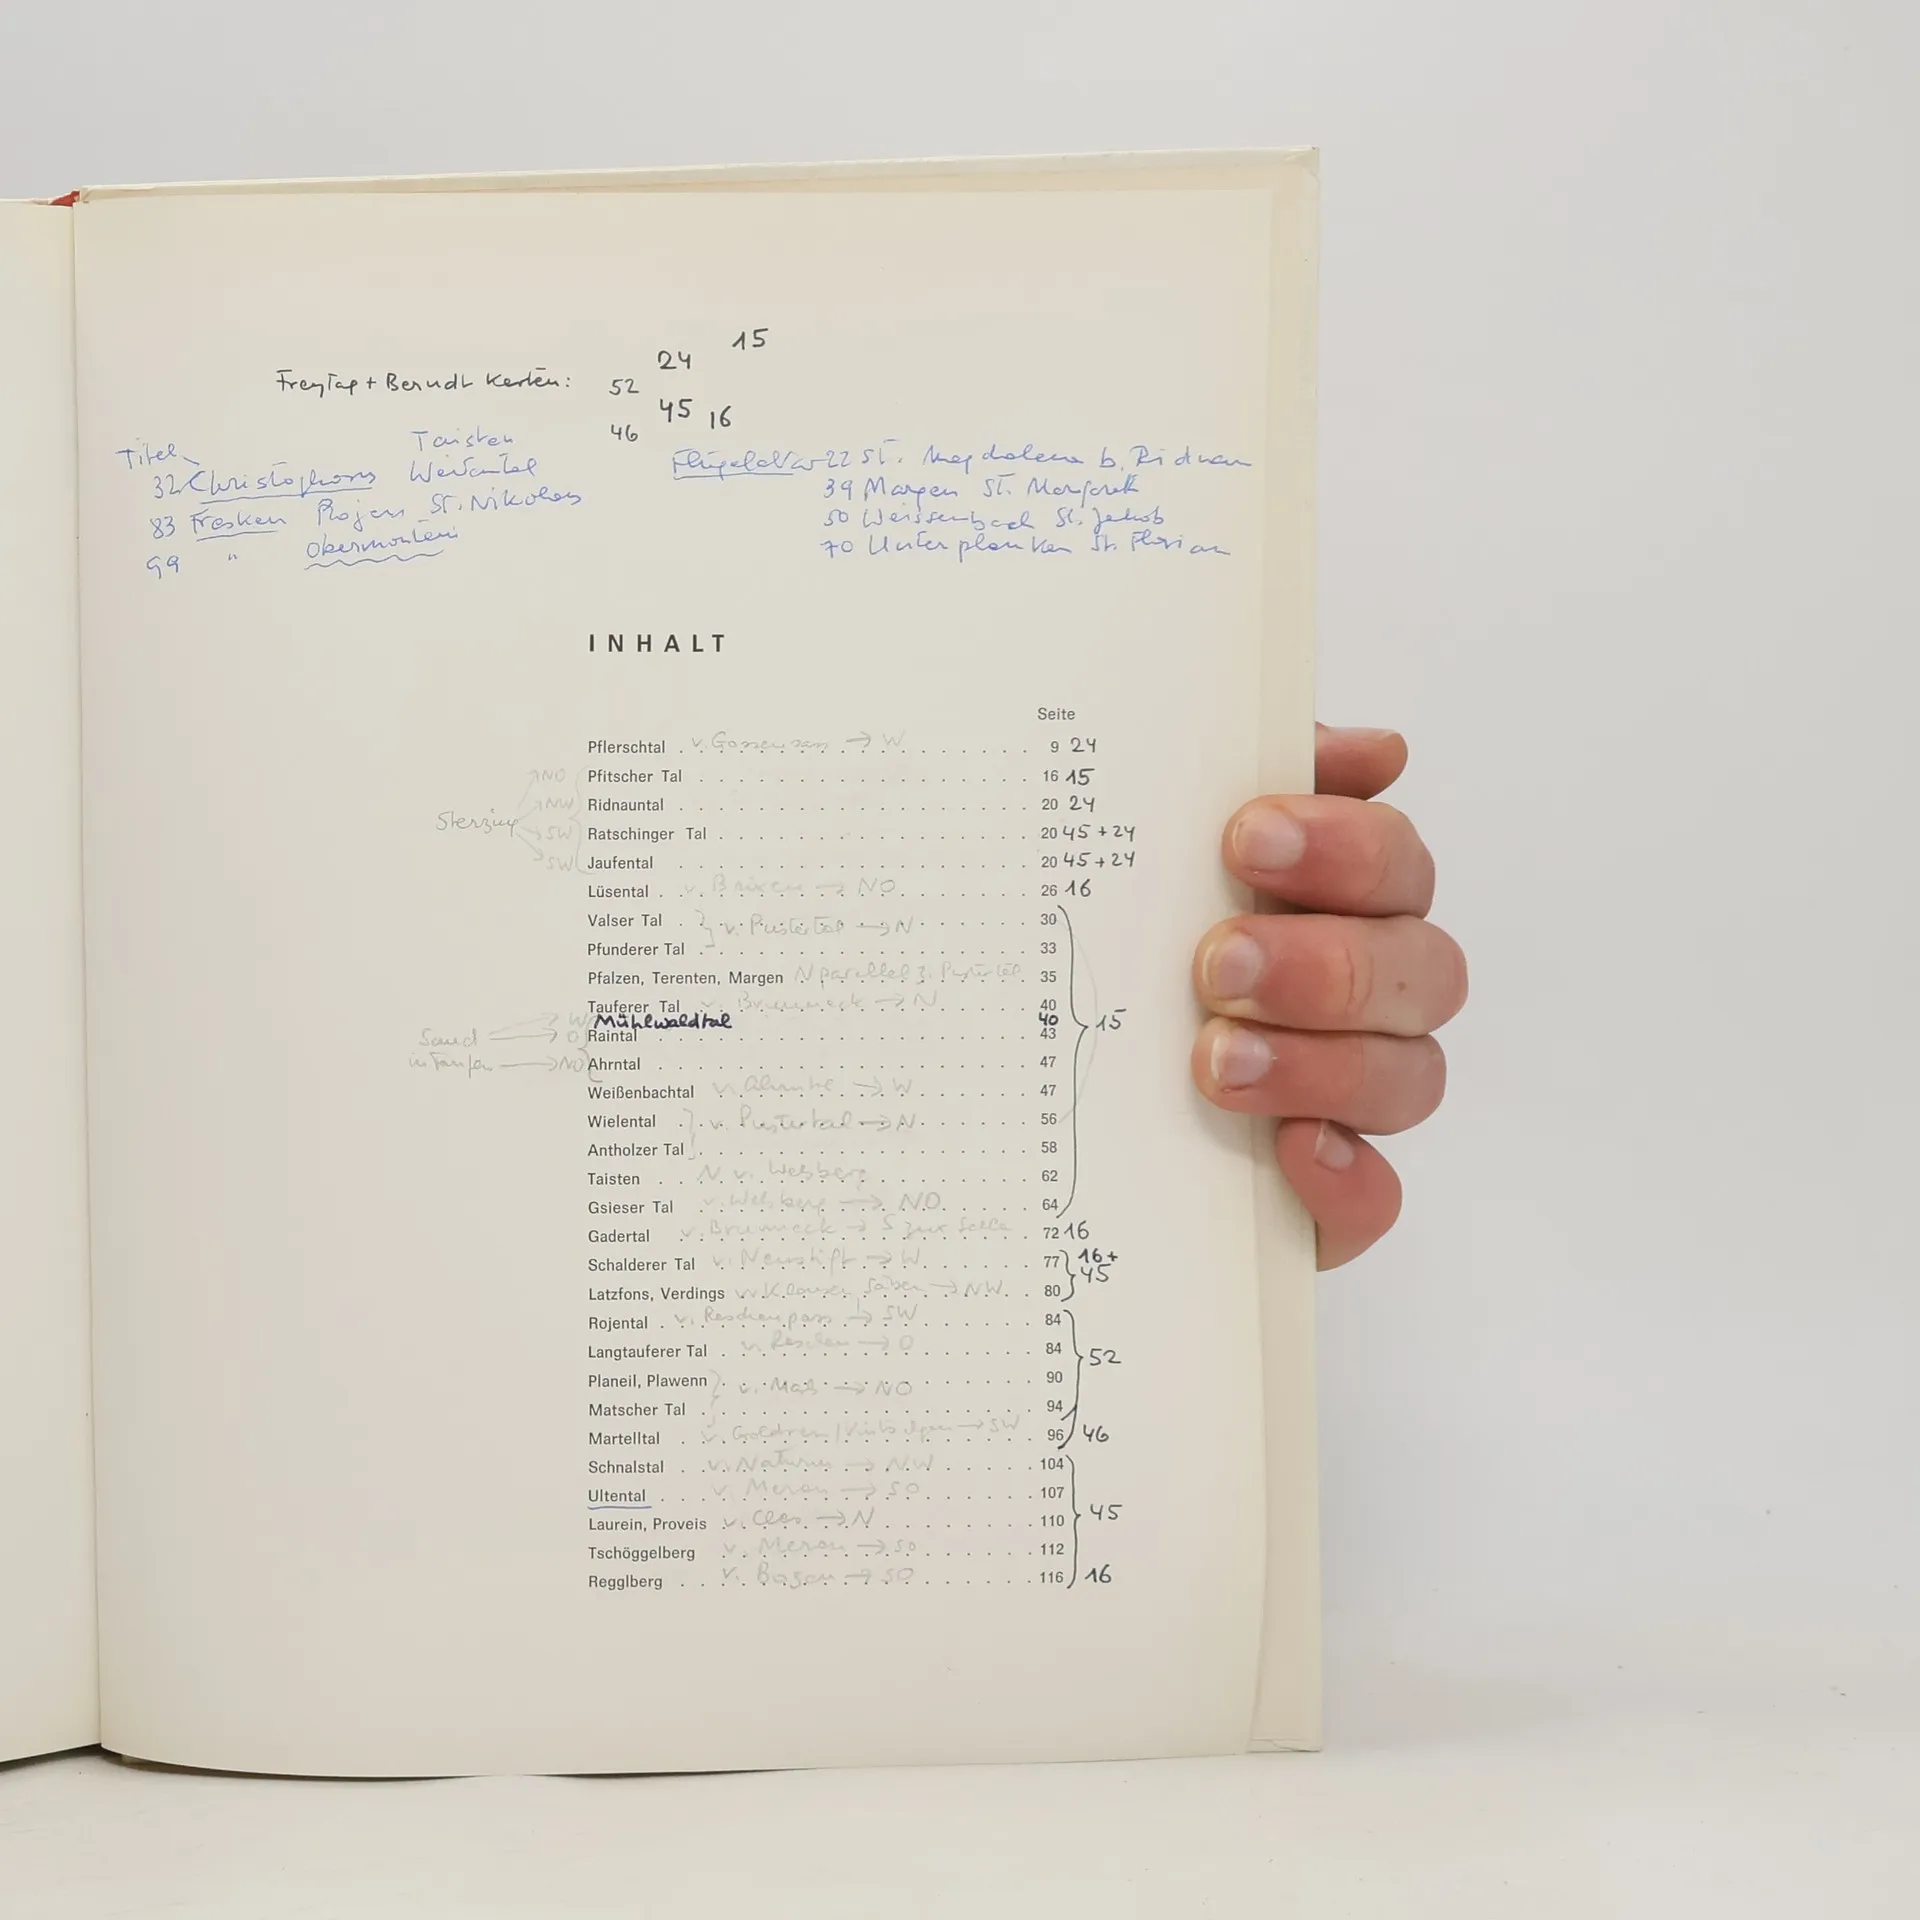 15
24
Freytag + Berndt Karten: 52
45 16
46
Titel
Taisten
32 Christophorus
Flügelaltar 22 St. Magdalena b. Ridnaun
83 Fresken Rojen St. Nikolaus
39 Margen St. Margareth
50 Weissenbach St. Jakob
99 " Obermontani
70 Unterplanken St. Florian
INHALT
Seite
Pflerschtal v. Gossensass → W 9 24
NO Pfitscher Tal 16 15
NW Ridnauntal 20 24
Sterzing SW Ratschinger Tal 20 45 + 24
SW Jaufental 20 45 + 24
Lüsental v. Brixen → NO 26 16
Valser Tal 30
v. Pustertal → N
Pfunderer Tal 33
Pfalzen, Terenten, Margen N parallel z. Pustertal 35
Tauferer Tal v. Brunneck → N 40
W Mühlwaldtal 40 15
Sand → O Raintal 43
in Taufers → NO Ahrntal 47
Weißenbachtal v. Ahrntal → W 47
Wielental v. Pustertal → N 56
Antholzer Tal 58
Taisten N v. Welsberg 62
Gsieser Tal v. Welsberg → NO 64
Gadertal v. Brunneck → S zur Sella 72 16
Schalderer Tal v. Neustift → W 77 16 +
45
Latzfons, Verdings v. Klausen Säben → NW 80
Rojental v. Reschenpass → SW 84
Langtauferer Tal v. Reschen → O 84 52
Planeil, Plawenn 90
v. Mals → NO
Matscher Tal 94
Martelltal v. Goldrain/Vintschgau → SW 96 46
Schnalstal v. Naturns → NW 104
Ultental v. Meran → SO 107
45
Laurein, Proveis v. Cles → N 110
Tschöggelberg v. Meran → SO 112
Regglberg v. Bozen → SO 116 16